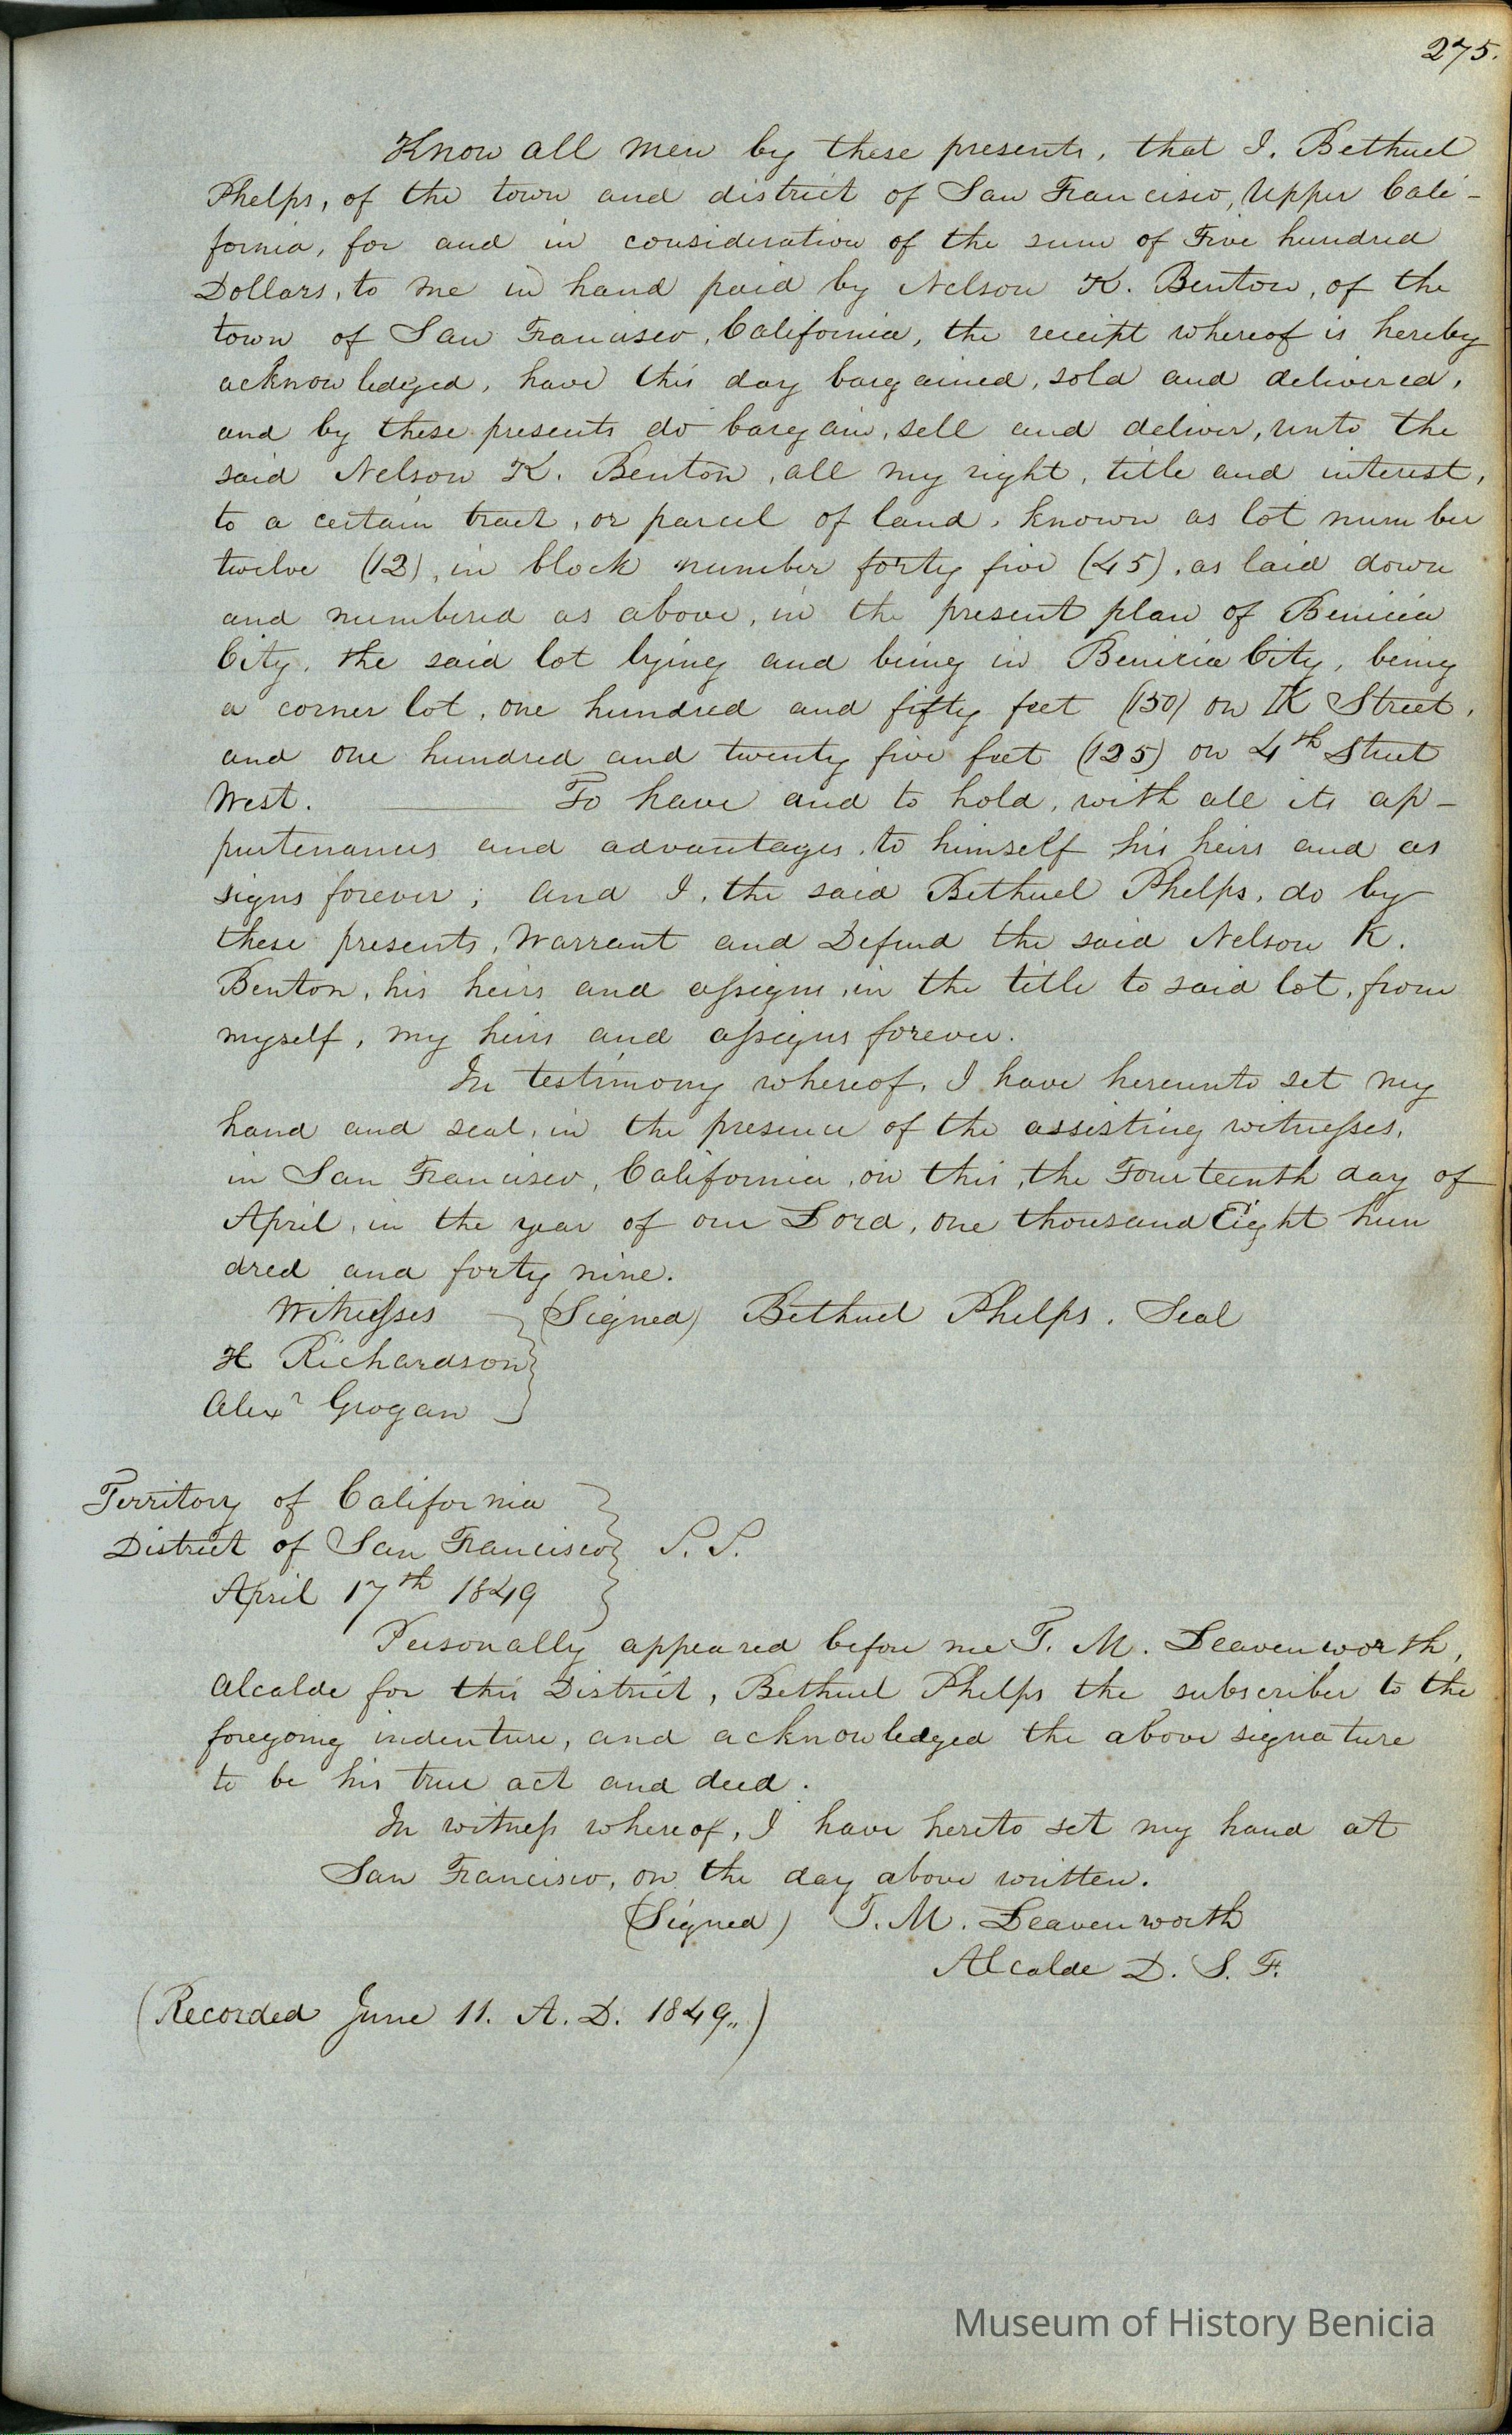 275.
Know all men by these presents, that I, Bethuel
Phelps, of the town and district of San Francisco, Upper Cali-
fornia, for and in consideration of the sum of Five hundred
Dollars, to me in hand paid by Nelson K. Benton, of the
town of San Francisco, California, the receipt whereof is hereby
acknowledged, have this day bargained, sold and delivered,
and by these presents do bargain, sell and deliver, unto the
said Nelson K. Benton, all my right, title and interest,
to a certain tract, or parcel of land, known as lot number
twelve (12), in block number forty five (45), as laid down
and numbered as above, in the present plan of Benicia
City, the said lot lying and being in Benicia City, being
a corner lot, one hundred and fifty feet (150) on K Street,
and one hundred and twenty five feet (125) on 4th Street
West. To have and to hold, with all its ap-
purtenances and advantages, to himself, his heirs and as
signs forever; and I, the said Bethuel Phelps, do by
these presents, Warrant and Defend the said Nelson K.
Benton, his heirs and assigns, in the title to said lot, from
myself, my heirs and assigns forever.
In testimony whereof, I have hereunto set my
hand and seal, in the presence of the assisting witnesses,
in San Francisco, California, on this, the Fourteenth day of
April, in the year of our Lord, one thousand Eight hun
dred and forty nine.
Witnesses (Signed) Bethuel Phelps. Seal
H Richardson
Alexr Grogan
Territory of California
District of San Francisco S.S.
April 17th 1849
Personally appeared before me T. M. Leavenworth,
Alcalde for this District, Bethuel Phelps the subscriber to the
foregoing indenture, and acknowledged the above signature
to be his true act and deed.
In witness whereof, I have hereto set my hand at
San Francisco, on the day above written.
(Signed) T. M. Leavenworth
Alcalde D. S. F.
(Recorded June 11. A. D. 1849.,)
Museum of History Benicia